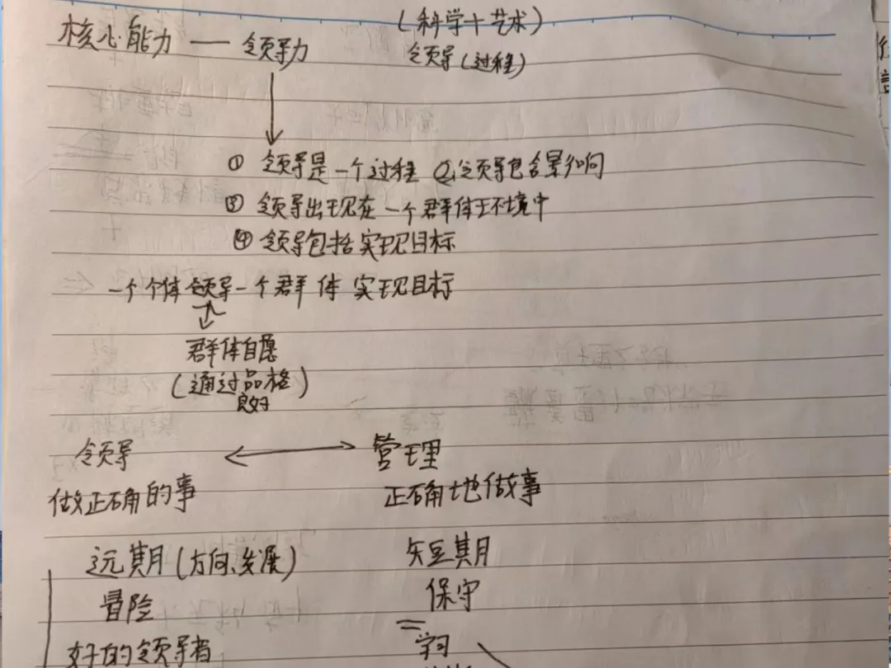 (科学+艺术)
核心能力 — 领导力 领导(过程)
① 领导是一个过程 ②领导包含影响
③ 领导出现在一个群体环境中
④ 领导包括实现目标
一个个体领导一个群体实现目标
群体自愿
(通过品格)
良好
领导 管理
做正确的事 正确地做事
远期(方向、发展) 短期
冒险 保守
好的领导者